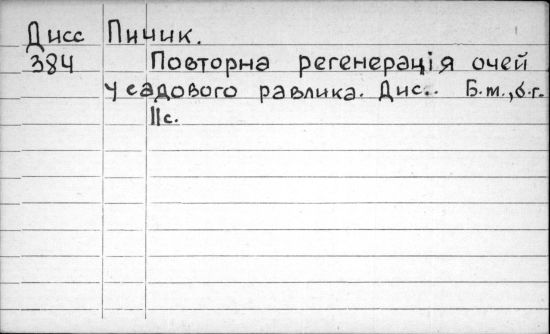 Дисс Пичик.
384 Повторна регенерація очей
у садового равлика. Дис.. Б.м.,б.г.
11с.